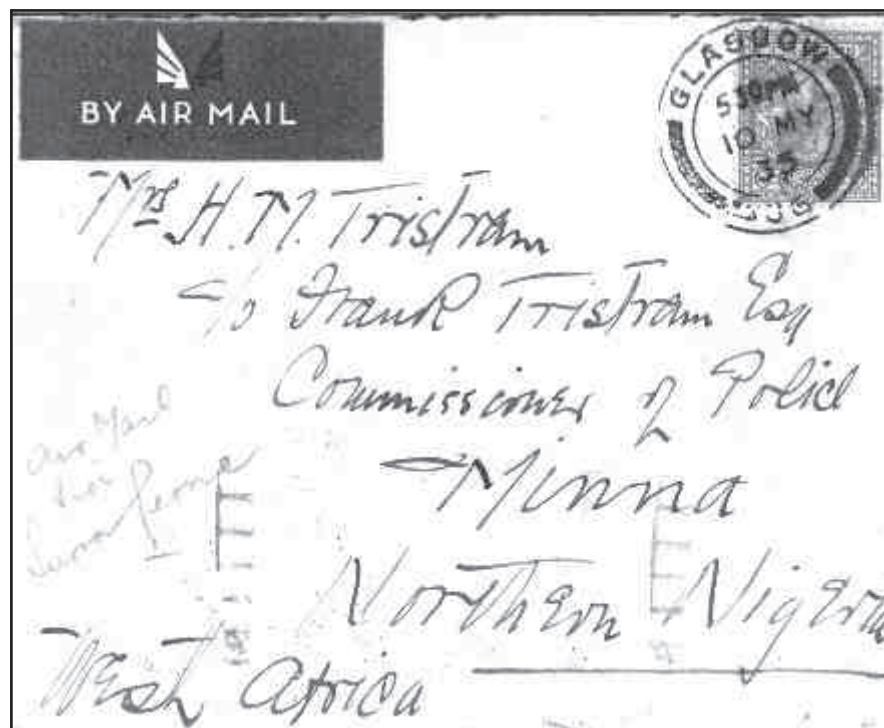 BY AIR MAIL
GLASGOW
530PM
10 MY
Mrs H. M. Tristram
c/o Frank Tristram Esq
Commissioner of Police
Minna
Northern Nigeria
West Africa
Air Mail